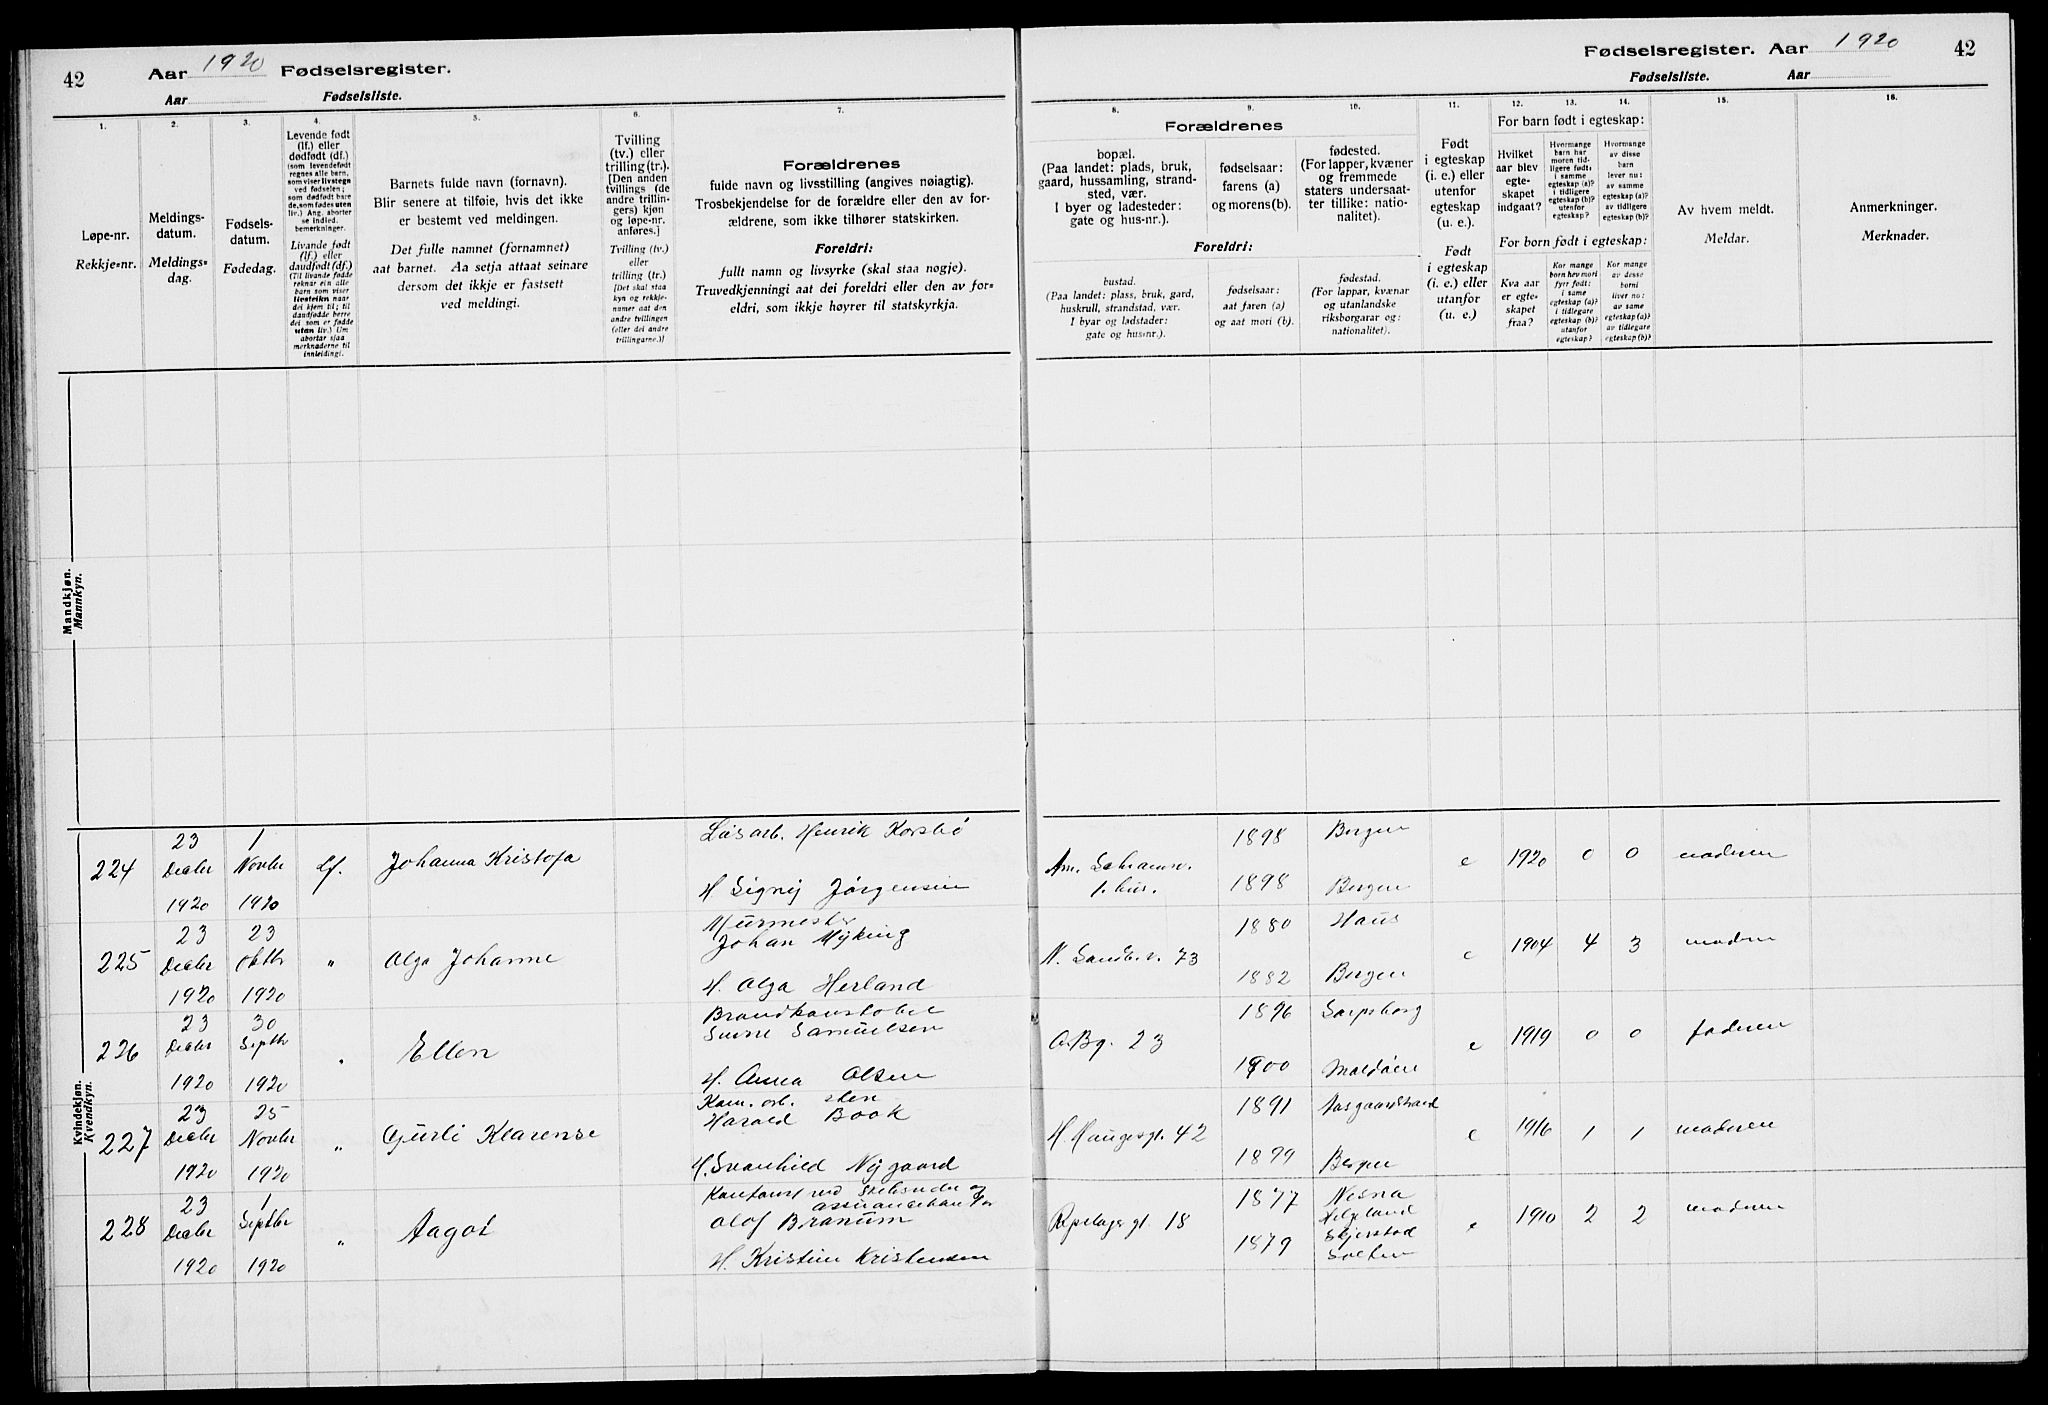 42 Aar 1920 Fødselsregister.
Aar Fødselsliste.
Fødselsregister. Aar 1920 42
Fødselsliste. Aar
1.
Løpe-nr.
Rekkje-nr.
2.
Meldings-
datum.
Meldings-
dag.
3.
Fødsels-
datum.
Fødedag.
4.
Levende født
(lf.) eller
dødfødt (df.)
(som levendefødt
regnes alle barn,
som viser livstegn
ved fødselen;
som dødfødt bare
de, som fødes uten
liv.) Ang. aborter
se indled.
bemerkninger.
Livande født
(lf.) eller
daudfødt (df.)
(Til livande fødde
reknar ein alle
barn som viser
livsteikn naar
dei kjem til; til
daudfødde berre
dei som er fødde
utan liv.) Um
abortar sjaa
merknaderne til
innleidingi.
5.
Barnets fulde navn (fornavn).
Blir senere at tilføie, hvis det ikke
er bestemt ved meldingen.
Det fulle namnet (fornamnet)
aat barnet. Aa setja attaat seinare
dersom det ikkje er fastsett
ved meldingi.
6.
Tvilling
(tv.) eller
trilling (tr.).
[Den anden
tvillings (de
andre trillin-
gers) kjøn
og løpe-nr.
anføres.]
Tvilling (tv.)
eller
trilling (tr.)
[Det skal staa
kyn og rekkje-
numer aat den
andre tvillingen
(eller dei andre
trillingarne.)]
7.
Forældrenes
fulde navn og livsstilling (angives nøiagtig).
Trosbekjendelse for de forældre eller den av for-
ældrene, som ikke tilhører statskirken.
Foreldri:
fullt namn og livsyrke (skal staa nøgje).
Truvedkjenningi aat dei foreldri eller den av for-
eldri, som ikkje høyrer til statskyrkja.
8. 9. 10.
Forældrenes
bopæl.
(Paa landet: plads, bruk,
gaard, hussamling, strand-
sted, vær.
I byer og ladesteder:
gate og hus-nr.).
fødselsaar:
farens (a)
og morens (b).
fødested.
(For lapper, kvæner
og fremmede
staters undersaat-
ter tillike: natio-
nalitet).
Foreldri:
bustad.
(Paa landet: plass, bruk, gard,
huskrull, strandstad, vær.
I byar og ladstader:
gate og hus-nr.).
fødselsaar:
aat faren (a)
og aat mori (b).
fødestad.
(For lappar, kvænar
og utanlandske
riksborgarar og:
nationalitet).
11.
Født
i egteskap
(i. e.) eller
utenfor
egteskap
(u. e.).
Født
i egteskap
(i. e.) eller
utanfor
(u. e.)
12. 13. 14.
For barn født i egteskap:
Hvilket
aar blev
egte-
skapet
indgaat?
Hvormange
barn har
moren tid-
ligere født:
i samme
egteskap (a)?
i tidligere
egteskap (b)?
utenfor
egteskap?
Hvormange
av disse
barn
lever nu:
av samme
egteskap (a)?
av tidligere
egteskap (b)?
For born født i egteskap:
Kva aar
er egte-
skapet
fraa?
Kor mange
born hev mori
fyrr født:
i same
egteskap (a)?
i tidlegare
egteskap (b)?
utanfor
egteskap?
Kor mange
av desse
borni
liver no:
av same
egteskap (a)?
av tidlegare
egteskap (b)?
15.
Av hvem meldt.
Meldar.
16.
Anmerkninger.
Merknader.
Mandkjøn.
Mannkyn.
Kvindekjøn.
Kvendkyn.
224 23 Decbr 1920 1 Novbr 1920 Lf. Johanna Kristofa
Løsarb. Henrik Korsbø
H Signy Jørgensen
1. hus.
1898 Bergen
1898 Bergen
e 1920 0 0 moderen
225 23 Decbr 1920 23 Oktbr 1920 " Olga Johanne
Murmester
Johan Myking
H. Olga Herland
N. Sandb.v. 73
1880 Haus
1882 Bergen
e 1904 4 3 modren
226 23 Decbr 1920 30 Septbr 1920 " Ellen
Brandkonstabel
Samuelsen
H. Anna Olsen
23
1896 Sarpsborg
1900 Maldøen
e 1919 0 0 faderen
227 23 Decbr 1920 25 Novbr 1920 " Gurli Klarense
Harald Book
H. Svanhild Nygaard
H. Haugesgt. 42
1891 Aasgaardstrand
1899 Bergen
e 1916 1 1 moderen
228 23 Decbr 1920 1 Septbr 1920 " Aagot
Olof Branum
H. Kristine Kristensen
Repslagergt. 18
1877 Nesna
Helgeland
1879 Skjerstad
Salten
e 1910 2 2 modren